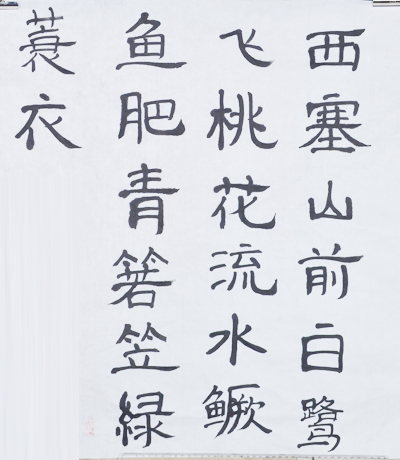 西塞山前白鹭
飞桃花流水鳜
鱼肥青箬笠緑
蓑衣